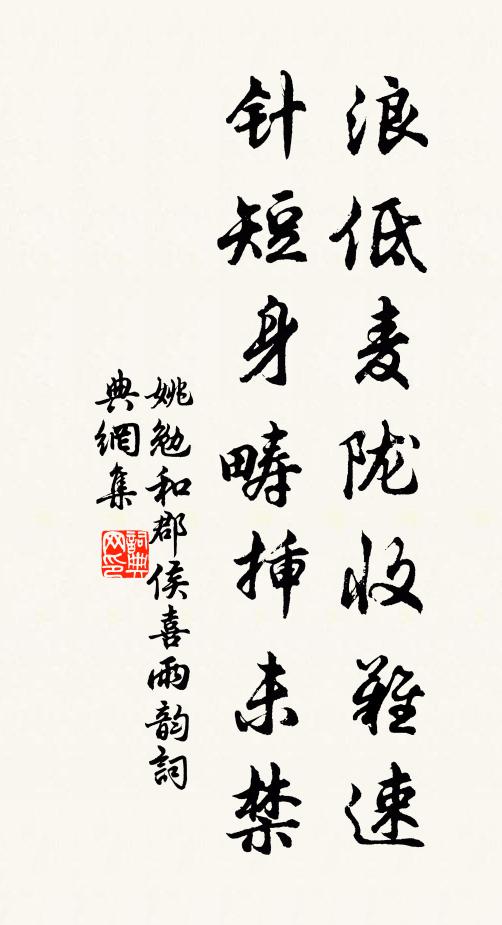 浪低麦陇收难速
针短身畴插未禁
姚勉和郡侯喜雨韵词
典网集
词典
网印